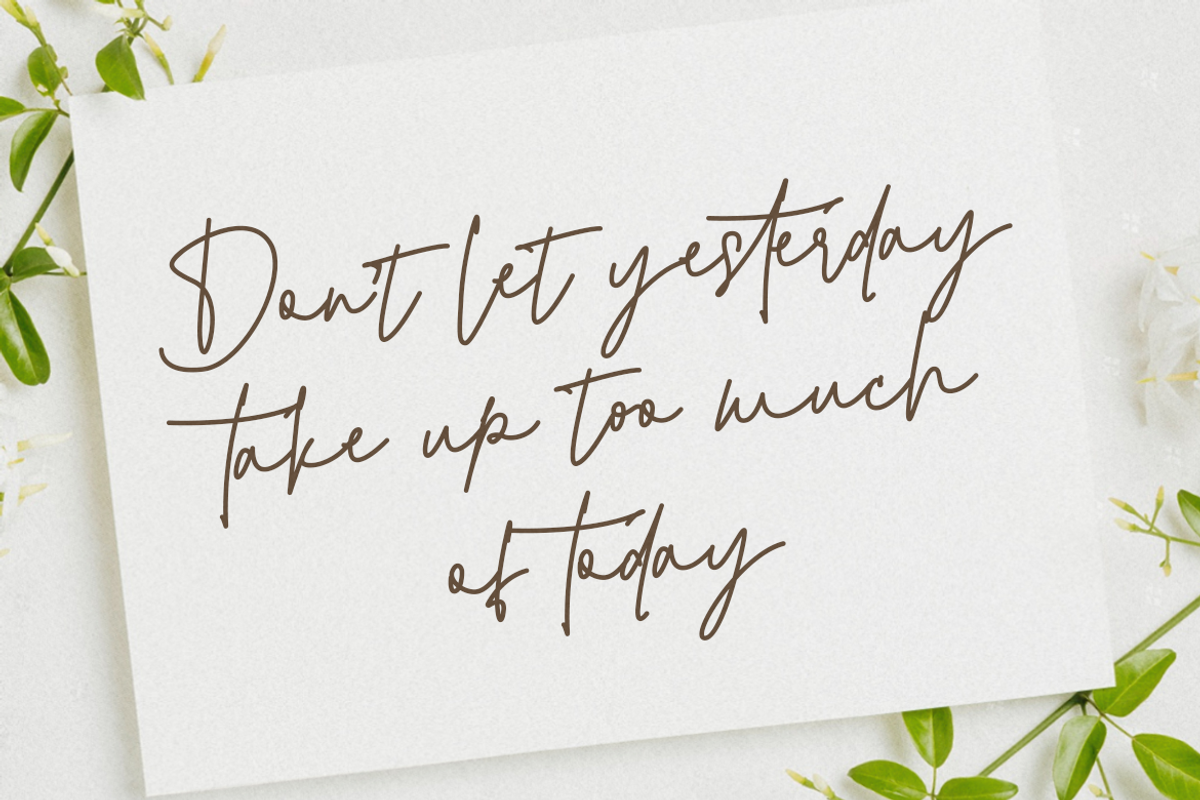 Don't let yesterday
take up too much
of today